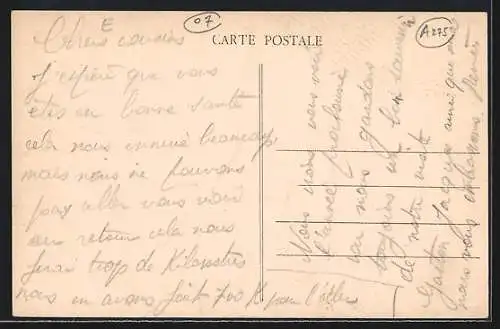 E
07
A275
CARTE POSTALE
Chers cousins
J'espère que vous
êtes en bonne santé
cela nous ennuie beaucoup,
mais nous ne pouvons
pas aller vous voir
au retour cela nous
ferai trop de Kilomètres
nous en avons fait 700 K pour l'aller
Nous irons vous voir
l'année prochaine
car nous gardons
toujours un bon souvenir
de notre visite
Gaston Jacques ainsi que moi
nous vous embrassons